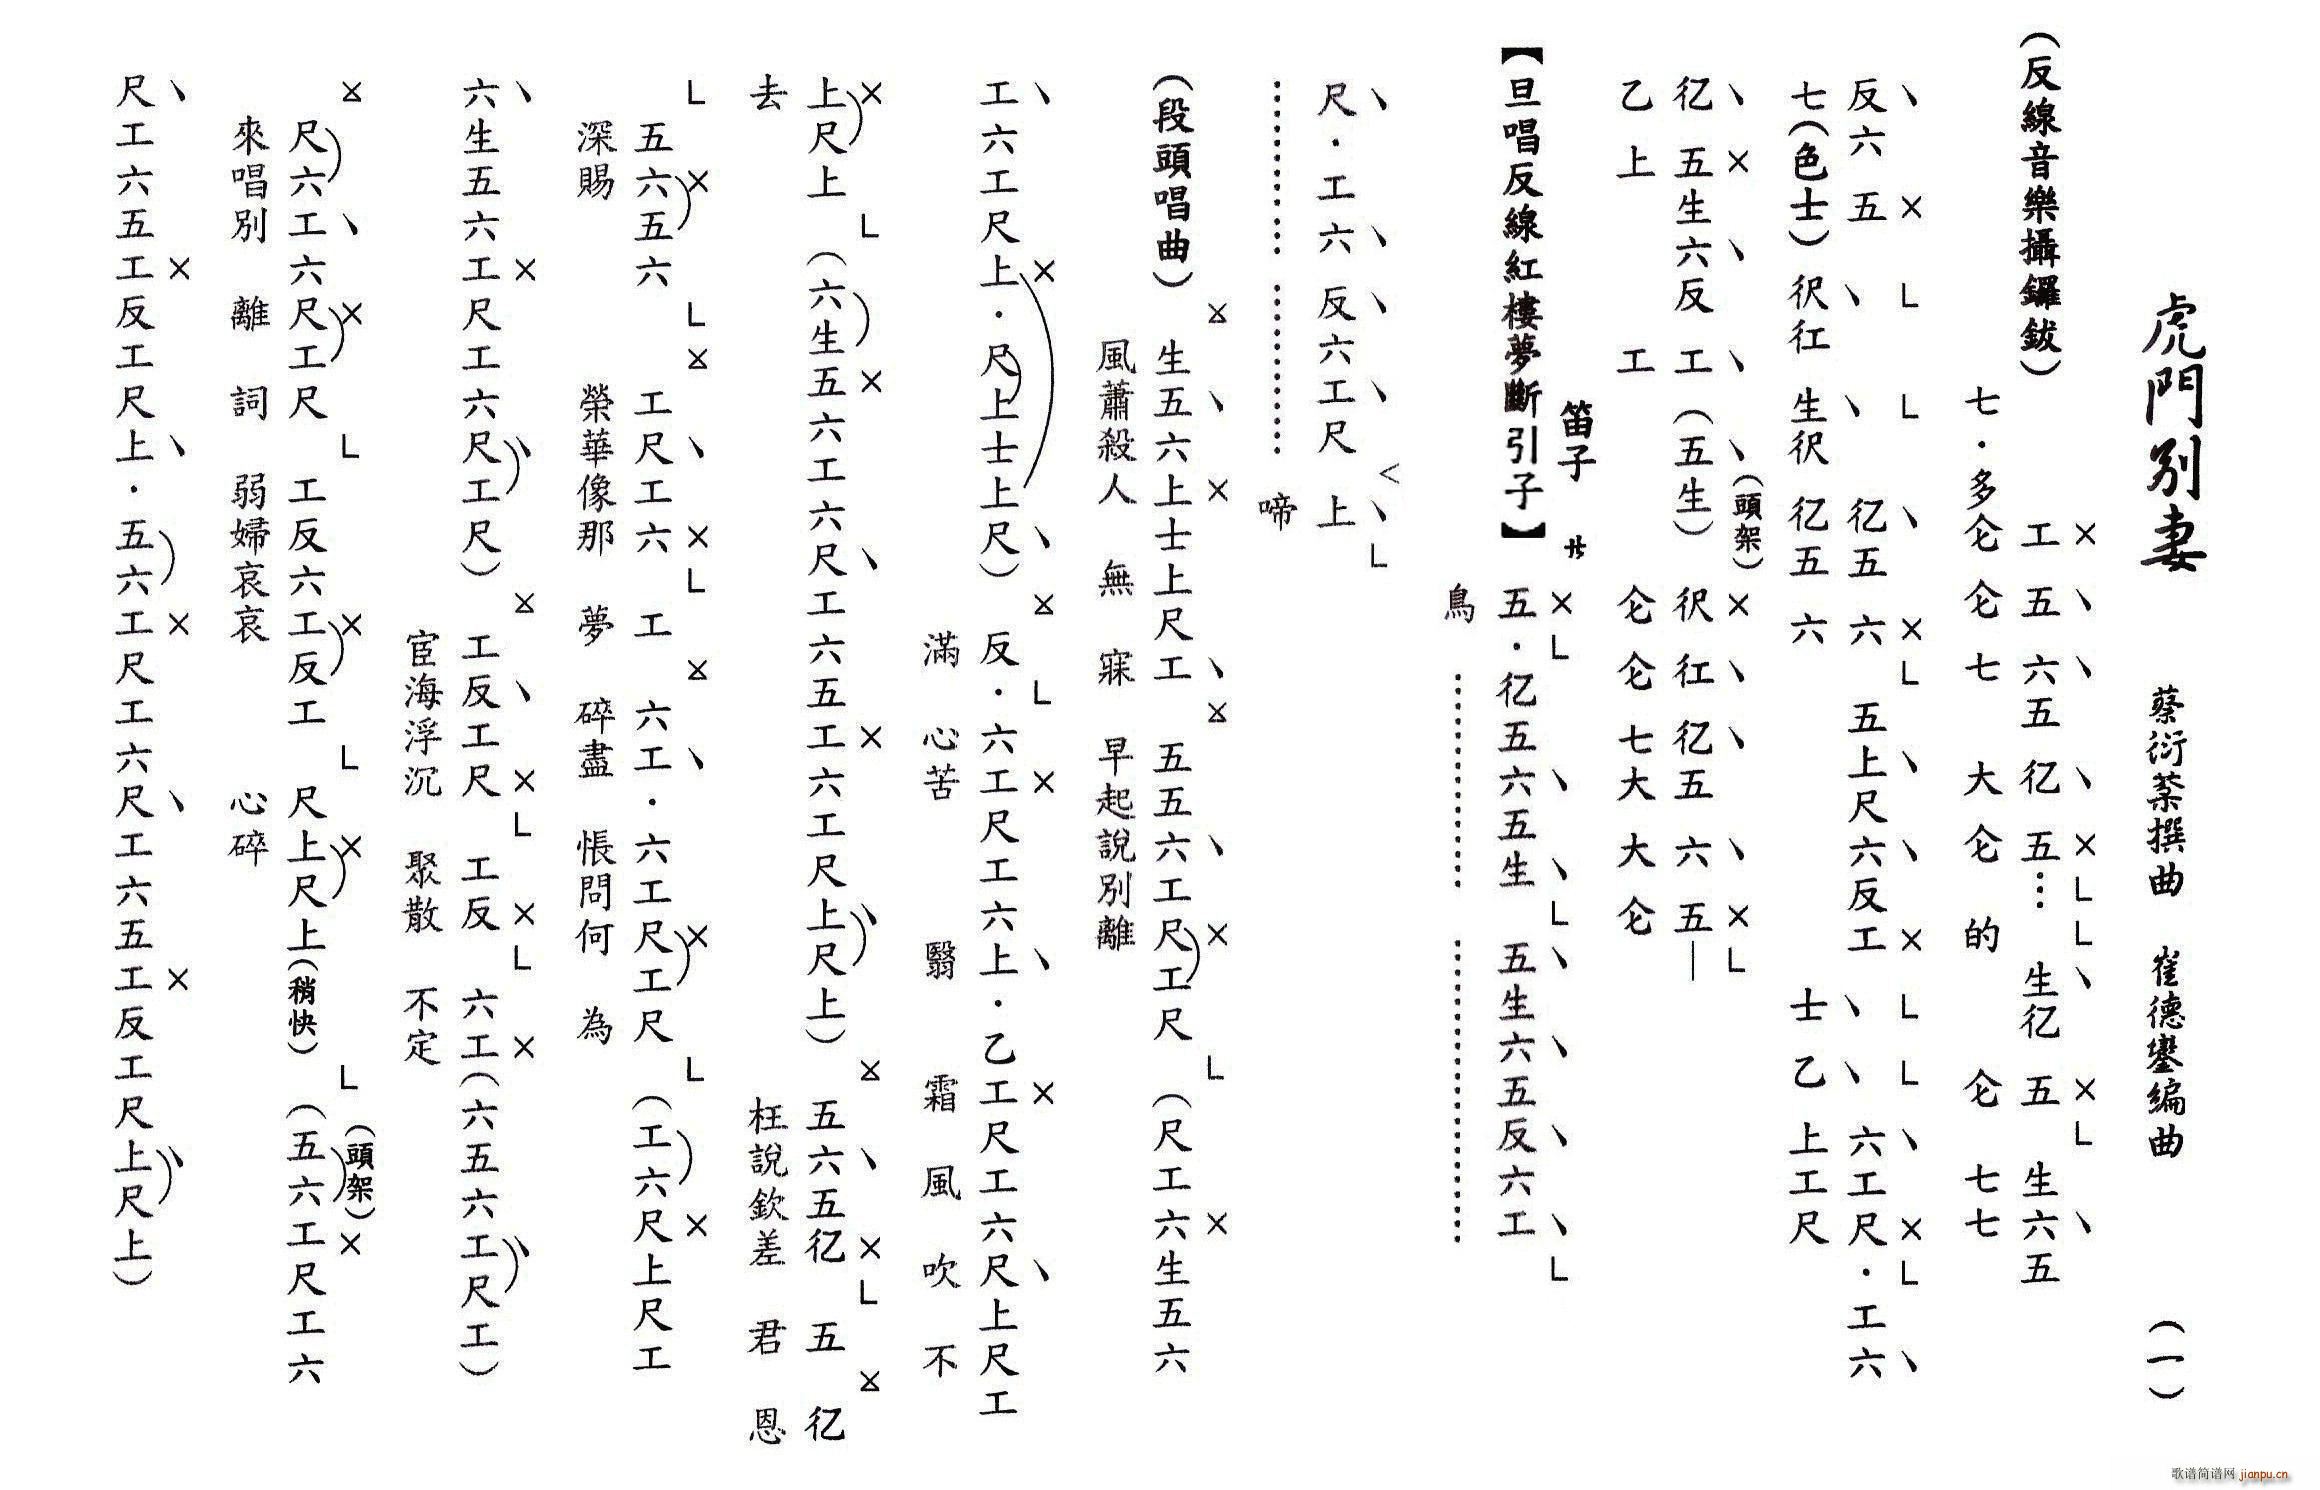 虎門別妻 蔡衍棻撰曲 崔德鑾編曲 (一)
(反線音樂攝鑼鈸)
× 工 五 六五 彳乙 五… 生 五 生六五
七·多仑 仑 七 大 仑 的 仑 七七
反六 五 五 六 五上尺六反工 六工尺·工六
七(色士) 生 五 六 士 乙 上工尺
五生六反 工 (五生) (頭架) 五 六 五—
乙 上 工 仑 仑 七大 大 仑
【旦唱反線紅樓夢斷引子】 笛子 サ
五·五六五生 五生六五反六工
鳥
尺·工六 反六工尺 上
啼
(段頭唱曲) 生五六上士上尺工 五五六工尺工尺 (尺工六生五六
風蕭殺人 無 寐 早起說別離
工六工尺上·尺上士上尺) 反·六工尺工六上·乙工尺工六尺上尺工
滿 心苦 翳 霜 風 吹 不
上尺上 (六生五六工六尺工六五工六工尺上尺上) 五六五 五
去 枉說欽差 君 恩
五六五六 工尺工六 工 六工·六工尺工尺 (工六尺上尺工
深賜 榮華像那 夢 碎盡 悵問何 為
六生五六工尺工六尺工尺) 工反工尺 工反 六工(六五六工尺工)
宦海浮沉 聚散 不定
尺六工六尺工尺 工反六工反工 尺上尺上(稍快) (頭架) (五六工尺工六
來唱別 離 詞 弱婦哀哀 心碎
尺工六五工反工尺上·五六工尺工六尺工六五工反工尺上尺上)
歌谱简谱网 jianpu.cn